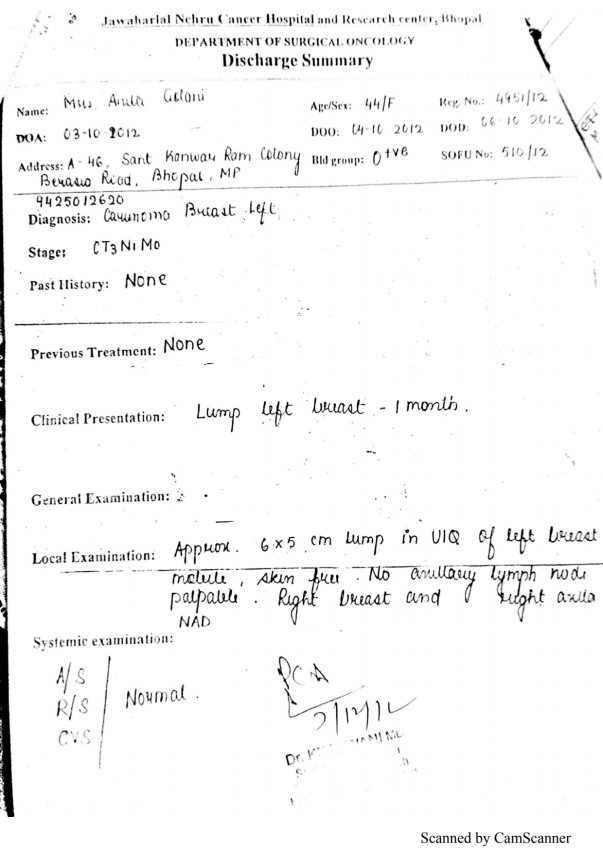 Jawaharlal Nehru Cancer Hospital and Research center, Bhopal
DEPARTMENT OF SURGICAL ONCOLOGY
Discharge Summary
Name: Mrs Anita Golani Age/Sex: 44/F Reg. No.: 4951/12
DOA: 03-10-2012 DOO: 04-10 2012 DOD: 06-10 2012
Address: A-46, Sant Kanwar Ram Colony Bld group: O +ve SOFU No: 510/12
Berasia Road, Bhopal, MP
9425012620
Diagnosis: Carcinoma Breast Left
Stage: CT3N1M0
Past History: None
Previous Treatment: None
Clinical Presentation: Lump left breast - 1 month.
General Examination:
Local Examination: Approx. 6x5 cm lump in UIQ of left breast
mobile, skin free. No axillary lymph node
palpable. Right breast and right axilla
NAD
Systemic examination:
A/S
R/S Normal.
CVS
Dr.
Scanned by CamScanner